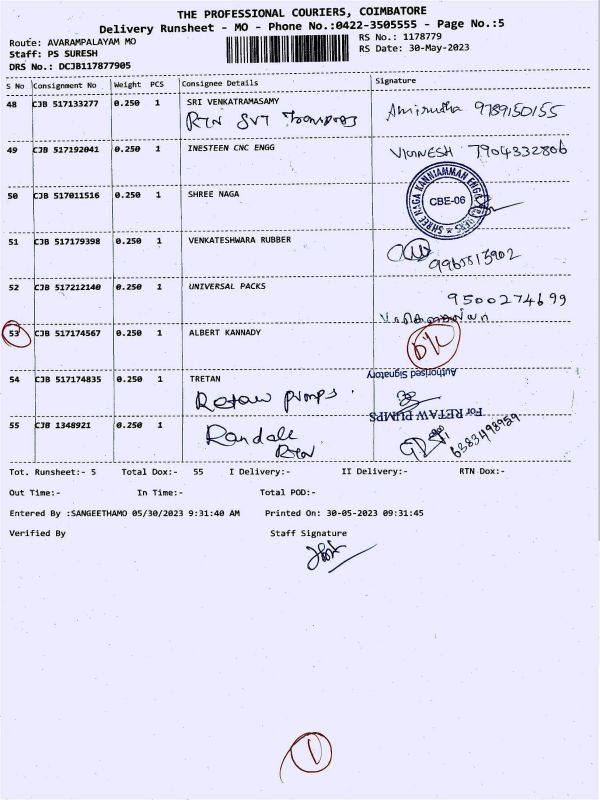 THE PROFESSIONAL COURIERS, COIMBATORE
Delivery Runsheet - MO - Phone No.:0422-3505555 - Page No.:5
Route: AVARAMPALAYAM MO
RS No.: 1178779
Staff: PS SURESH
RS Date: 30-May-2023
DRS No.: DCJB117877905
S No Consignment No Weight PCS Consignee Details Signature
48 CJB 517133277 0.250 1 SRI VENKATRAMASAMY
RTN SVT Transports Amirutha 9789150155
49 CJB 517192041 0.250 1 INESTEEN CNC ENGG VIGNESH 7904332806
50 CJB 517011516 0.250 1 SHREE NAGA
SHREE NAGA KANNIAMMAN ENGINEERS
CBE-06
51 CJB 517179398 0.250 1 VENKATESHWARA RUBBER
9965513902
52 CJB 517212140 0.250 1 UNIVERSAL PACKS
9500274699
53 CJB 517174567 0.250 1 ALBERT KANNADY
D/L
54 CJB 517174835 0.250 1 TRETAN
Authorised Signatory
Retaw pumps
For RETAW PUMPS
55 CJB 1348921 0.250 1
Randale
RTN
6383498959
Tot. Runsheet:- 5 Total Dox:- 55 I Delivery:- II Delivery:- RTN Dox:-
Out Time:- In Time:- Total POD:-
Entered By :SANGEETHAMO 05/30/2023 9:31:40 AM Printed On: 30-05-2023 09:31:45
Verified By Staff Signature
1